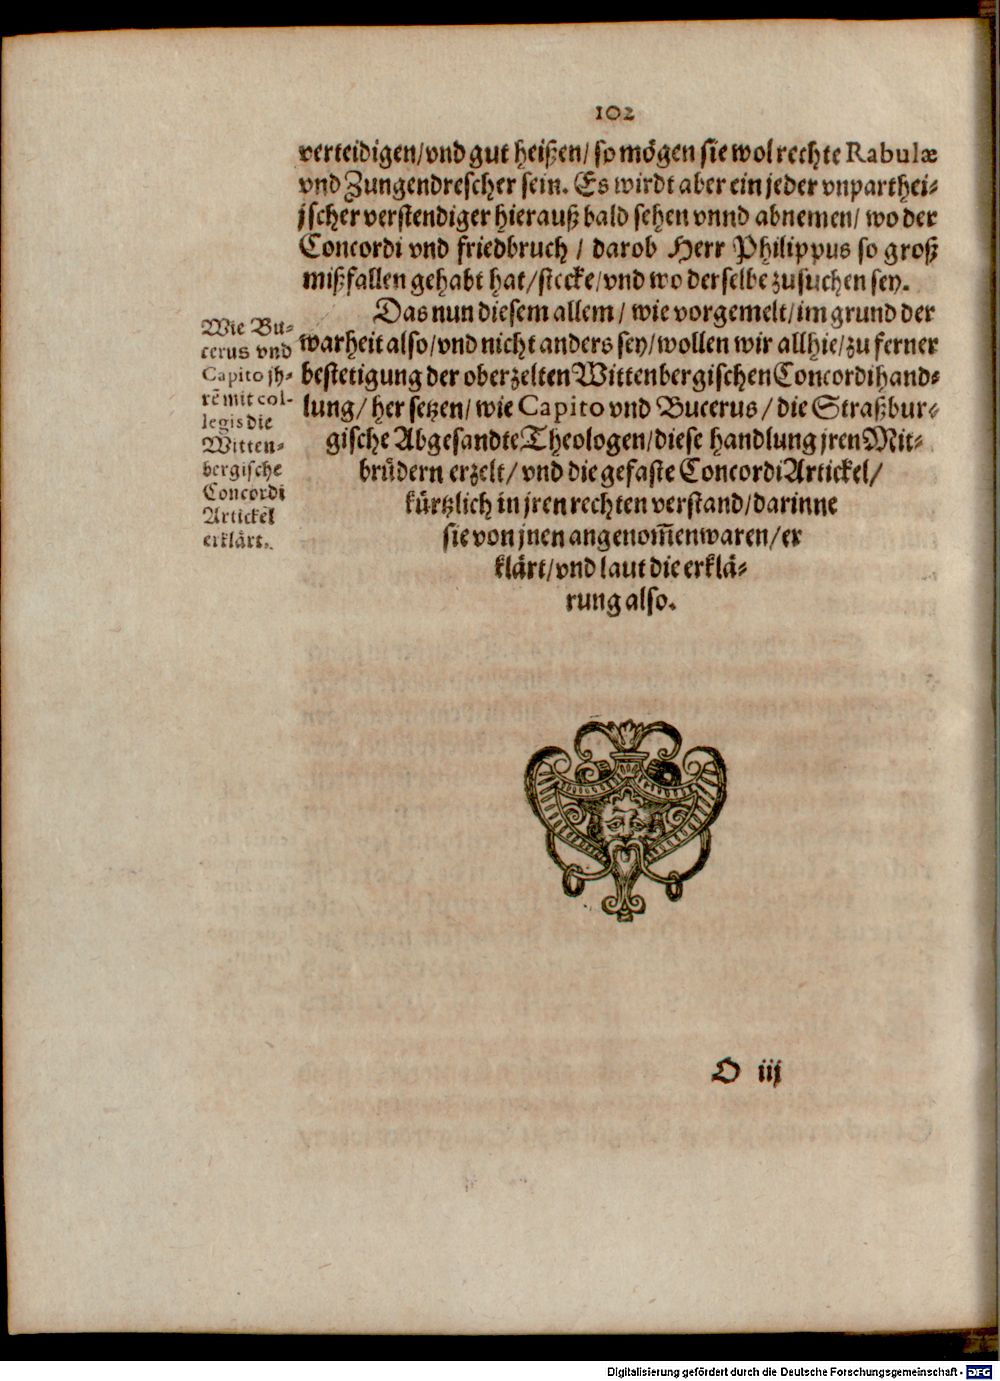 102
verteidigen/vnd gut heißen/ so mögen sie wol rechte Rabulæ
vnd Zungendrescher sein. Es wirdt aber ein jeder vnparthei-
jscher verstendiger hierauß bald sehen vnnd abnemen/ wo der
Concordi vnd friedbruch / darob Herr Philippus so groß
mißfallen gehabt hat/stecke/vnd wo derselbe zusuchen sey.
Das nun diesem allem/ wie vorgemelt/im grund der
warheit also/vnd nicht anders sey/wollen wir allhie/zu ferner
bestetigung der oberzelten Wittenbergischen Concordihand-
lung/ her setzen/ wie Capito vnd Bucerus/ die Straßbur-
gische Abgesandte Theologen/diese handlung jren Mit-
brüdern erzelt/ vnd die gefaste Concordi Artickel/
kürtzlich in jren rechten verstand/darinne
sie von jnen angenom̄en waren/er
klärt/vnd laut die erklä-
rung also.
Wie Bu-
cerus vnd
Capito jh-
rē mit col-
legis die
Witten-
bergische
Concordi
Artickel
erklärt.
O iij
Digitalisierung gefördert durch die Deutsche Forschungsgemeinschaft - DFG